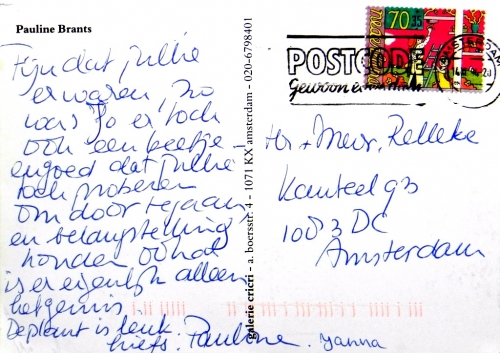 Pauline Brants
Fijn dat jullie
er waren, zo
was Jo er toch
ook een beetje -
en goed dat jullie
toch proberen
om door te gaan
en belangstelling
houden ook al
is er eigenlijk alleen
het gemis
De plant is leuk
liefs. Pauline. Yanna
galerie cricri - a. boersstr. 4 - 1071 KX amsterdam - 020-6798401
70 35
Nederland
POSTCODE
Gewoon een
AMSTERDAM
Hr + Mevr. Relleke
Kanteel 93
1083 DC
Amsterdam